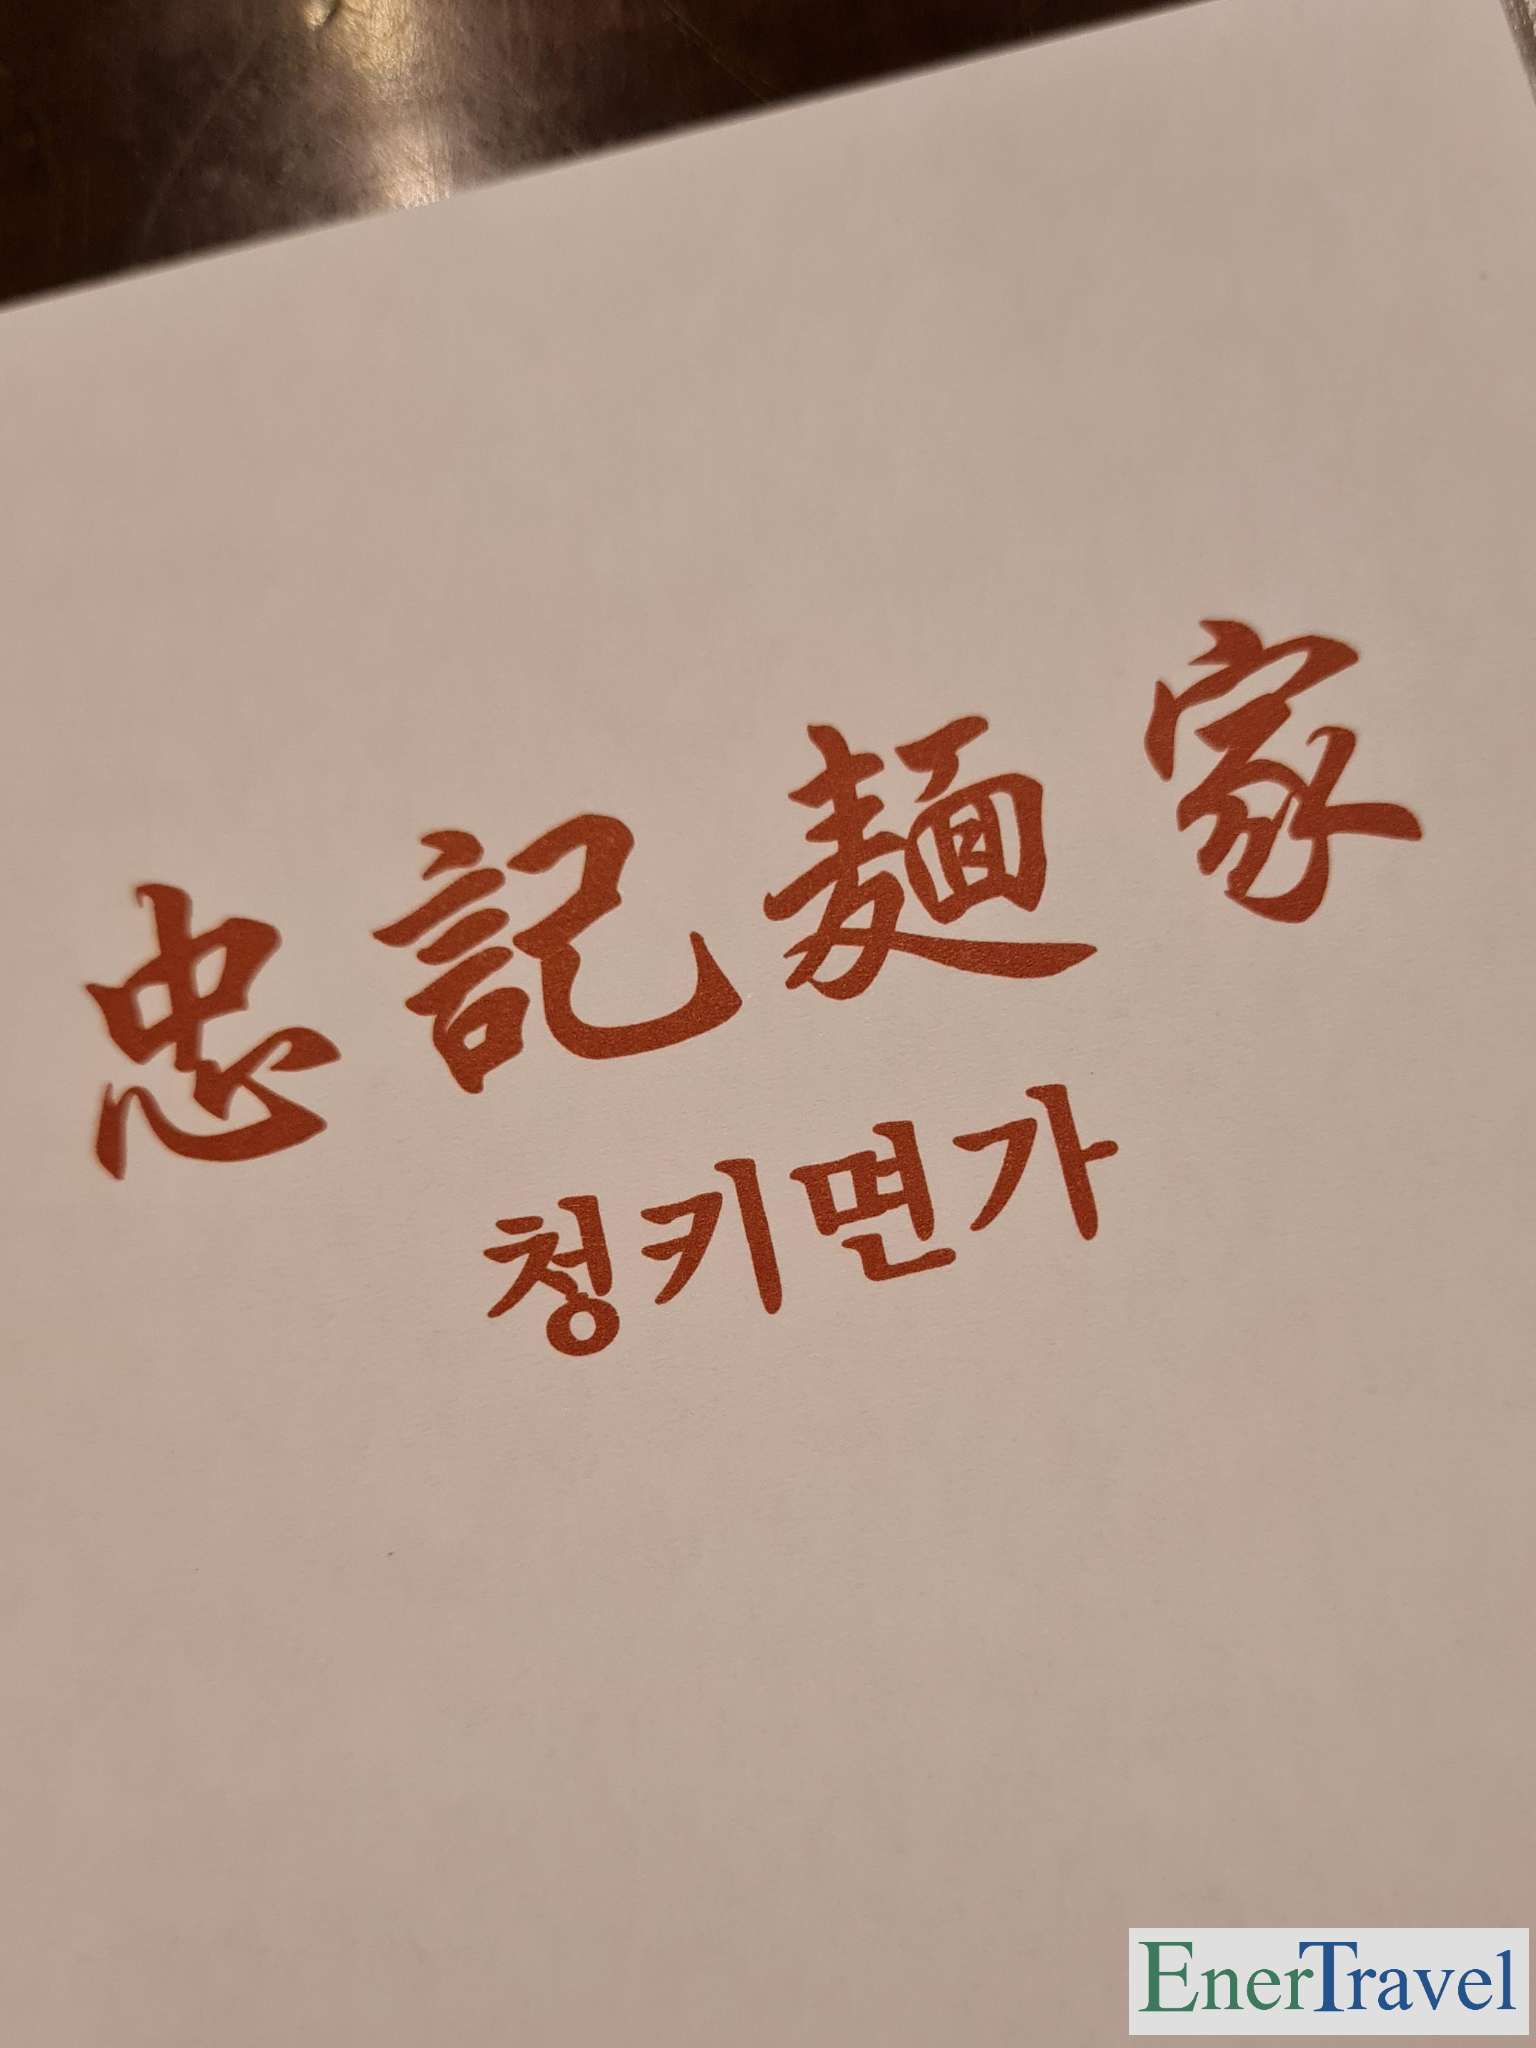 忠記麺家
청키면가
EnerTravel